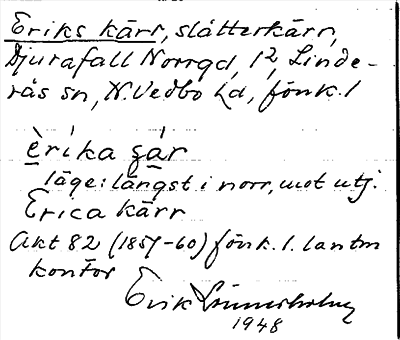 Eriks kärr, slåtterkärr,
Djurafall Norrgd, 1², Linde-
rås sn, N. Vedbo hd, Jönk. l
èrika ɕár
läge: längst i norr, mot utj.
Erica kärr
Akt 82 (1857-60) Jönk. l. lantm
kontor
Erik
1948